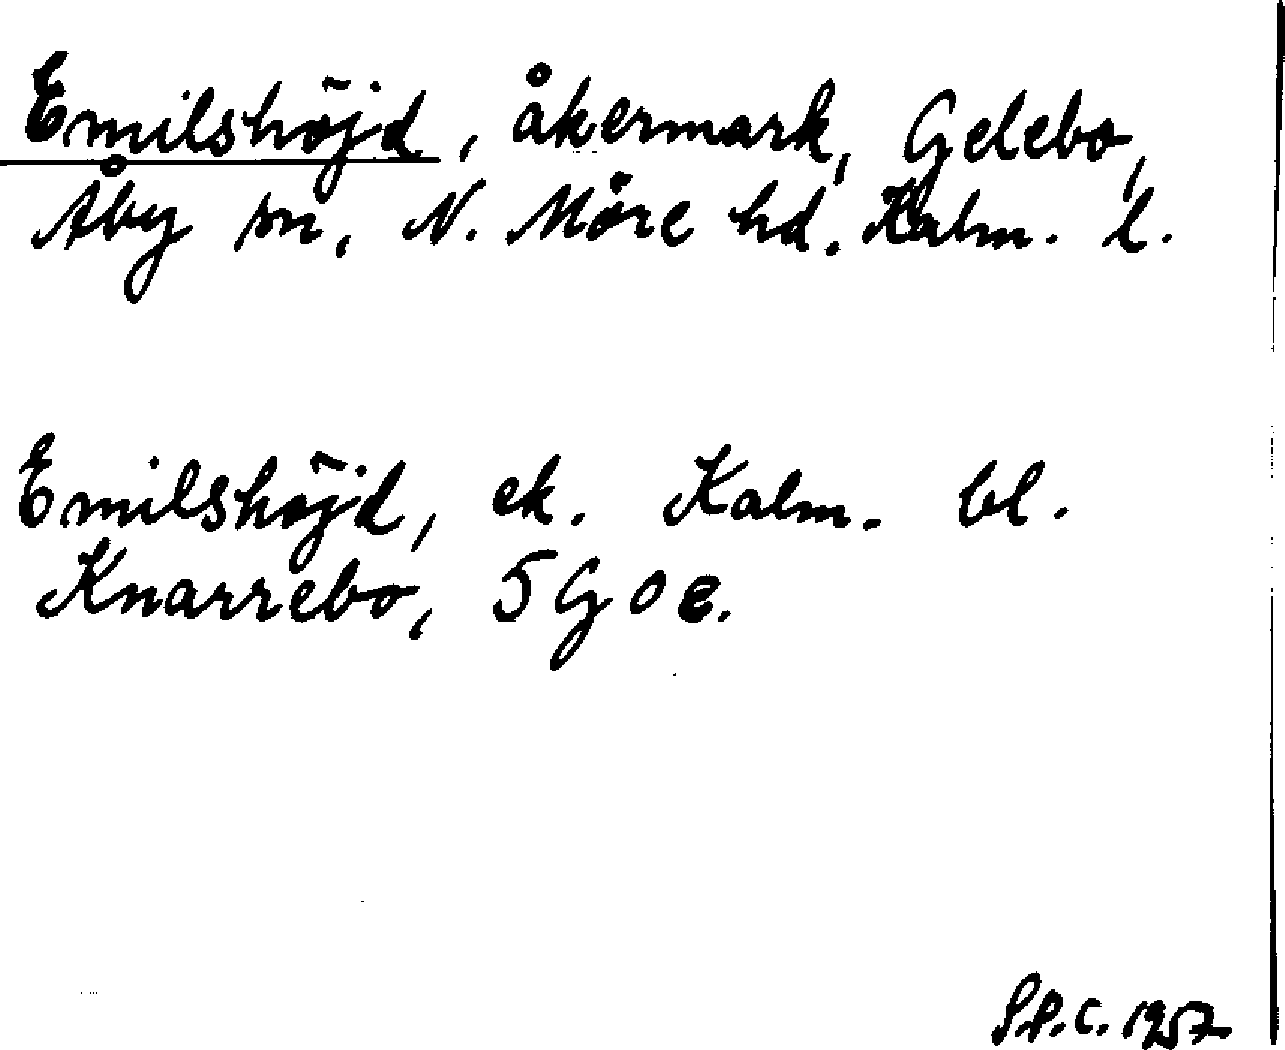 Emilshöjd, åkermark, Gelebo,
Åby sn, N. Möre hd. Kalm. l.
Emilshöjd, ek. Kalm. bl.
Knarrebo, 5G0e.
S.P.C. 1957